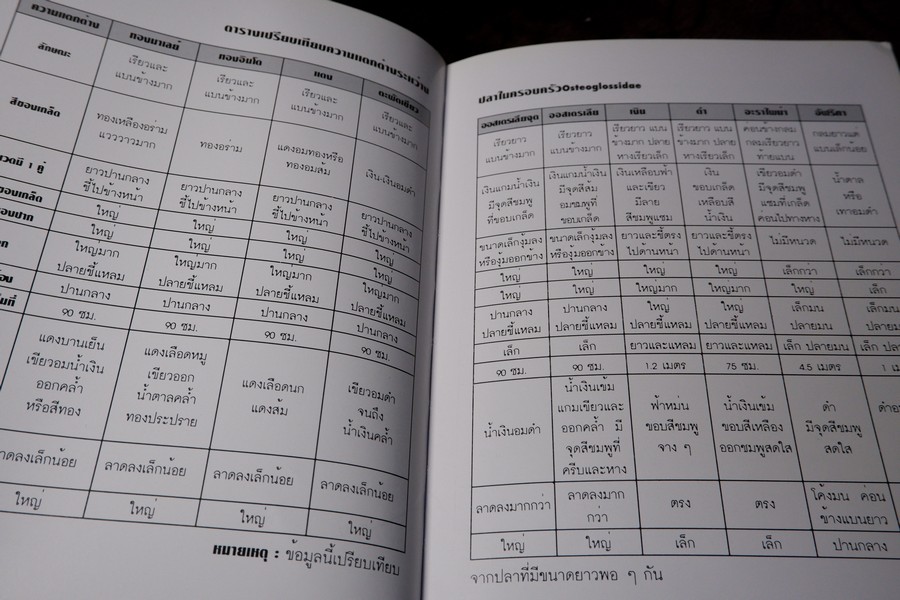 ตารางเปรียบเทียบความแตกต่างระหว่าง
ความแตกต่าง ทองมาเลย์ ทองอินโด แดง ตะพัดเขียว
ลักษณะ เรียวและ เรียวและ เรียวและ เรียวและ
แบนข้างมาก แบนข้างมาก แบนข้างมาก แบนข้างมาก
สีของเกล็ด ทองเหลืองอร่าม ทองอร่าม แดงอมทองหรือ เงิน-เงินอมดำ
แวววาวมาก ทองอมส้ม
วดมี 1 คู่ ยาวปานกลาง ยาวปานกลาง ยาวปานกลาง ยาวปานกลาง
ชี้ไปข้างหน้า ชี้ไปข้างหน้า ชี้ไปข้างหน้า ชี้ไปข้างหน้า
ของเกล็ด ใหญ่ ใหญ่ ใหญ่ ใหญ่
องปาก ใหญ่ ใหญ่ ใหญ่ ใหญ่
ใหญ่มาก ใหญ่มาก ใหญ่มาก ใหญ่มาก
ปลายชี้แหลม ปลายชี้แหลม ปลายชี้แหลม ปลายชี้แหลม
ปานกลาง ปานกลาง ปานกลาง ปานกลาง
90 ซม. 90 ซม. 90 ซม. 90 ซม.
แดงบานเย็น แดงเลือดหมู แดงเลือดนก เขียวอมดำ
เขียวอมน้ำเงิน เขียวออก แดงส้ม จนถึง
ออกคล้ำ น้ำตาลคล้ำ น้ำเงินคล้ำ
หรือสีทอง ทองประปราย
ลาดลงเล็กน้อย ลาดลงเล็กน้อย ลาดลงเล็กน้อย ลาดลงเล็กน้อย
ใหญ่ ใหญ่ ใหญ่ ใหญ่
หมายเหตุ : ข้อมูลนี้เปรียบเทียบ
ปลาในครอบครัวOsteoglossidae
ออสเตรเลียจุด ออสเตรเลีย เงิน ดำ อะราไพม่า อัฟริกา
เรียวยาว เรียวยาว เรียวยาว แบน เรียวยาว แบน ค่อนข้างกลม กลมยาวแต่
แบนข้างมาก แบนข้างมาก ข้างมาก ปลาย ข้างมาก ปลาย กลมเรียวยาว แบนเล็กน้อย
หางเรียวเล็ก หางเรียวเล็ก ท้ายแบน
เงินแกมน้ำเงิน เงินแกมน้ำเงิน เงินเหลือบฟ้า เงิน เขียวอมดำ น้ำตาล
มีจุดสีชมพู มีจุดสีส้ม และเขียว ขอบเกล็ด มีจุดสีชมพู หรือ
ที่ขอบเกล็ด อมชมพูที่ มีลาย เหลือบสี แซมที่เกล็ด เทาอมดำ
ขอบเกล็ด สีชมพูแซม น้ำเงิน ค่อนไปทางหาง
ขนาดเล็กงุ้มลง ขนาดเล็กงุ้มลง ยาวและชี้ตรง ยาวและชี้ตรง ไม่มีหนวด ไม่มีหนวด
หรืองุ้มออกข้าง หรืองุ้มออกข้าง ไปด้านหน้า ไปด้านหน้า
ใหญ่ ใหญ่ ใหญ่ ใหญ่ เล็กกว่า เล็กกว่า
ใหญ่ ใหญ่ ใหญ่ ใหญ่ เล็ก เล็ก
ปานกลาง ปานกลาง ใหญ่ ใหญ่ เล็กมน เล็กมน
ปลายชี้แหลม ปลายชี้แหลม ปลายชี้แหลม ปลายชี้แหลม ปลายมน ปลายมน
เล็ก เล็ก ยาวและแหลม ยาวและแหลม เล็ก ปลายมน เล็ก
90 ซม. 90 ซม. 1.2 เมตร 75 ซม. 4.5 เมตร 1
น้ำเงินอมดำ น้ำเงินเข้ม ฟ้าหม่น น้ำเงินเข้ม ดำ
แกมเขียวและ ขอบสีชมพู ขอบสีเหลือง มีจุดสีชมพู
ออกคล้ำ มี จาง ๆ ออกชมพูสดใส สดใส
จุดสีชมพูที่
ครีบและหาง
ลาดลงมากกว่า ลาดลงมาก ตรง ตรง โค้งมน ค่อน
กว่า ข้างแบนยาว
ใหญ่ ใหญ่ เล็ก เล็ก ปานกลาง
จากปลาที่มีขนาดยาวพอ ๆ กัน